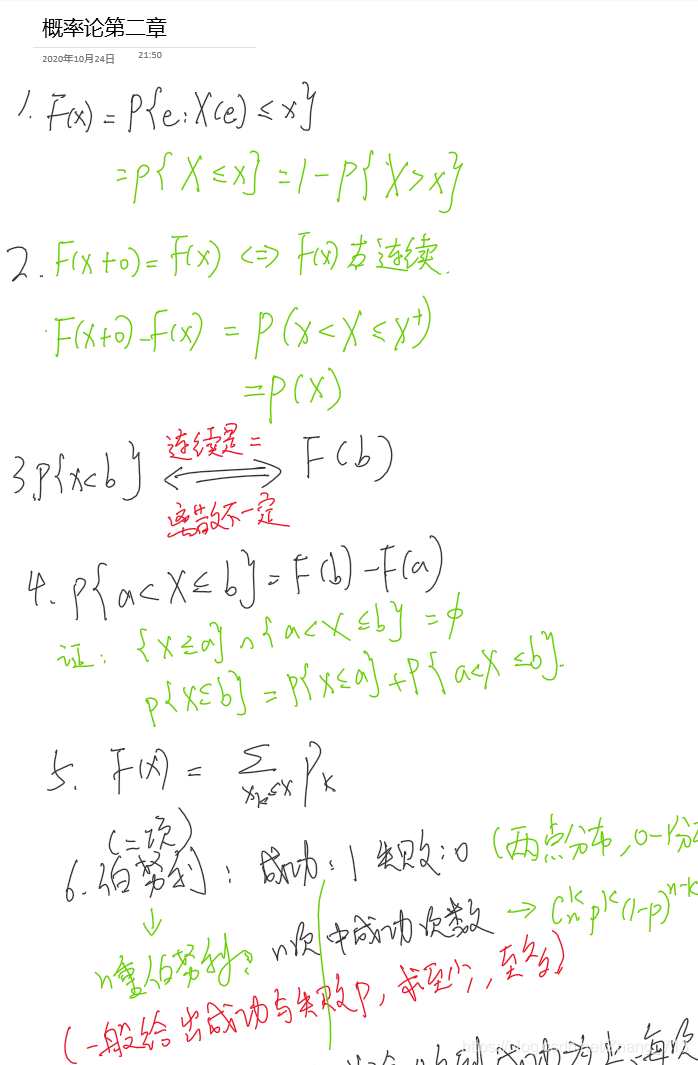 概率论第二章
2020年10月24日 21:50
1. F(x) = P{e: X(e) ≤ x}
= P{X ≤ x} = 1 - P{X > x}
2. F(x+0) = F(x) <=> F(x)右连续.
F(x+0) - F(x) = P(x < X ≤ x⁺)
= P(X)
连续是=
3. P{x<b} ⟺ F(b)
离散不一定
4. P{a < X ≤ b} = F(b) - F(a)
证: {X ≤ a} ∩ {a < X ≤ b} = ϕ
P{X ≤ b} = P{X ≤ a} + P{a < X ≤ b}.
5. F(x) = ∑_{x_k ≤ x} P_k
(二项)
6. 伯努利: 成功: 1 失败: 0 (两点分布, 0-1分布
↓
n重伯努利: n次中成功次数 → C_n^k p^k (1-p)^{n-k}
(一般给出成功与失败P, 求至少, 至多)